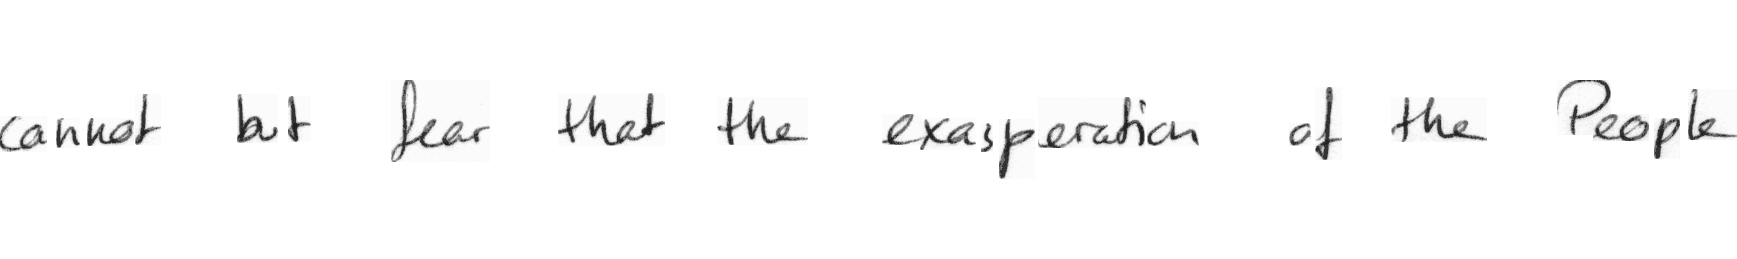 cannot but fear that the exasperation of the People